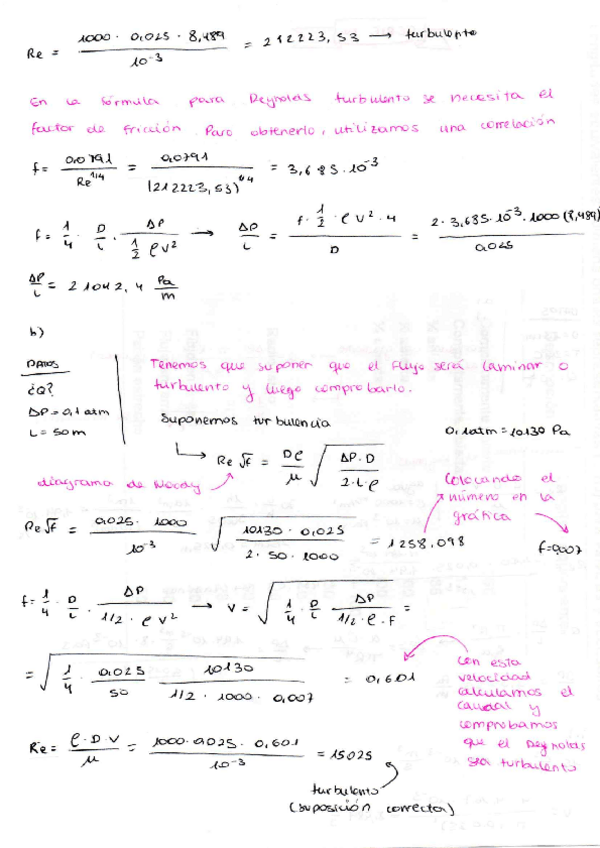 Re = 1000 · 0,025 · 8,489 / 10⁻³ = 212223,53 → turbulento
En la fórmula para Reynolds turbulento se necesita el
factor de fricción. Para obtenerlo, utilizamos una correlación
f = 0,0791 / Re^1/4 = 0,0791 / (212223,53)^1/4 = 3,685·10⁻³
f = 1/4 · D/L · ΔP / (1/2 ρ v²) → ΔP/L = f · 1/2 · ρ v² · 4 / D = 2 · 3,685·10⁻³ · 1000 (8,489) / 0,025
ΔP/L = 21042,4 Pa/m
b)
DATOS
¿Q?
ΔP = 0,1 atm
L = 50 m
Tenemos que suponer que el flujo será laminar o
turbulento y luego comprobarlo.
Suponemos turbulencia
0,1 atm = 10130 Pa
Re √f = Dρ/μ √(ΔP · D / 2 · L · ρ)
diagrama de Moody
Colocando el
número en la
gráfica
Re√f = 0,025 · 1000 / 10⁻³ √(10130 · 0,025 / 2 · 50 · 1000) = 1258,098
f=0,007
f = 1/4 · D/L · ΔP / (1/2 · ρ v²) → v = √(1/4 · D/L · ΔP / (1/2 · ρ · f)) =
= √(1/4 · 0,025/50 · 10130 / (1/2 · 1000 · 0,007)) = 0,601
Con esta
velocidad
calculamos el
caudal y
comprobamos
que el Reynolds
sea turbulento
Re = ρ · D · v / μ = 1000 · 0,025 · 0,601 / 10⁻³ = 15025
turbulento
(suposición correcta)